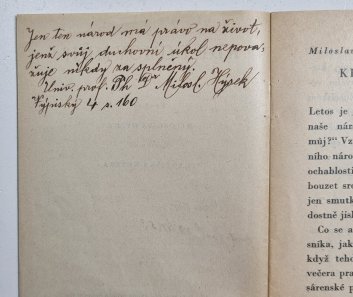 Jen ten národ má právo na život,
jenž svůj duchovní úkol nepova-
žuje nikdy za splněný.
Univ. prof. Ph Dr Milosl. Hýsek
Výpisky 4 s. 160
Miloslav
K
Letos je
naše nár
můj?" Vz
ního náro
ochablosti
bouzet sr
jen smutk
dostně jis
Co se a
sníka, jak
když teho
večera pra
sárenské p